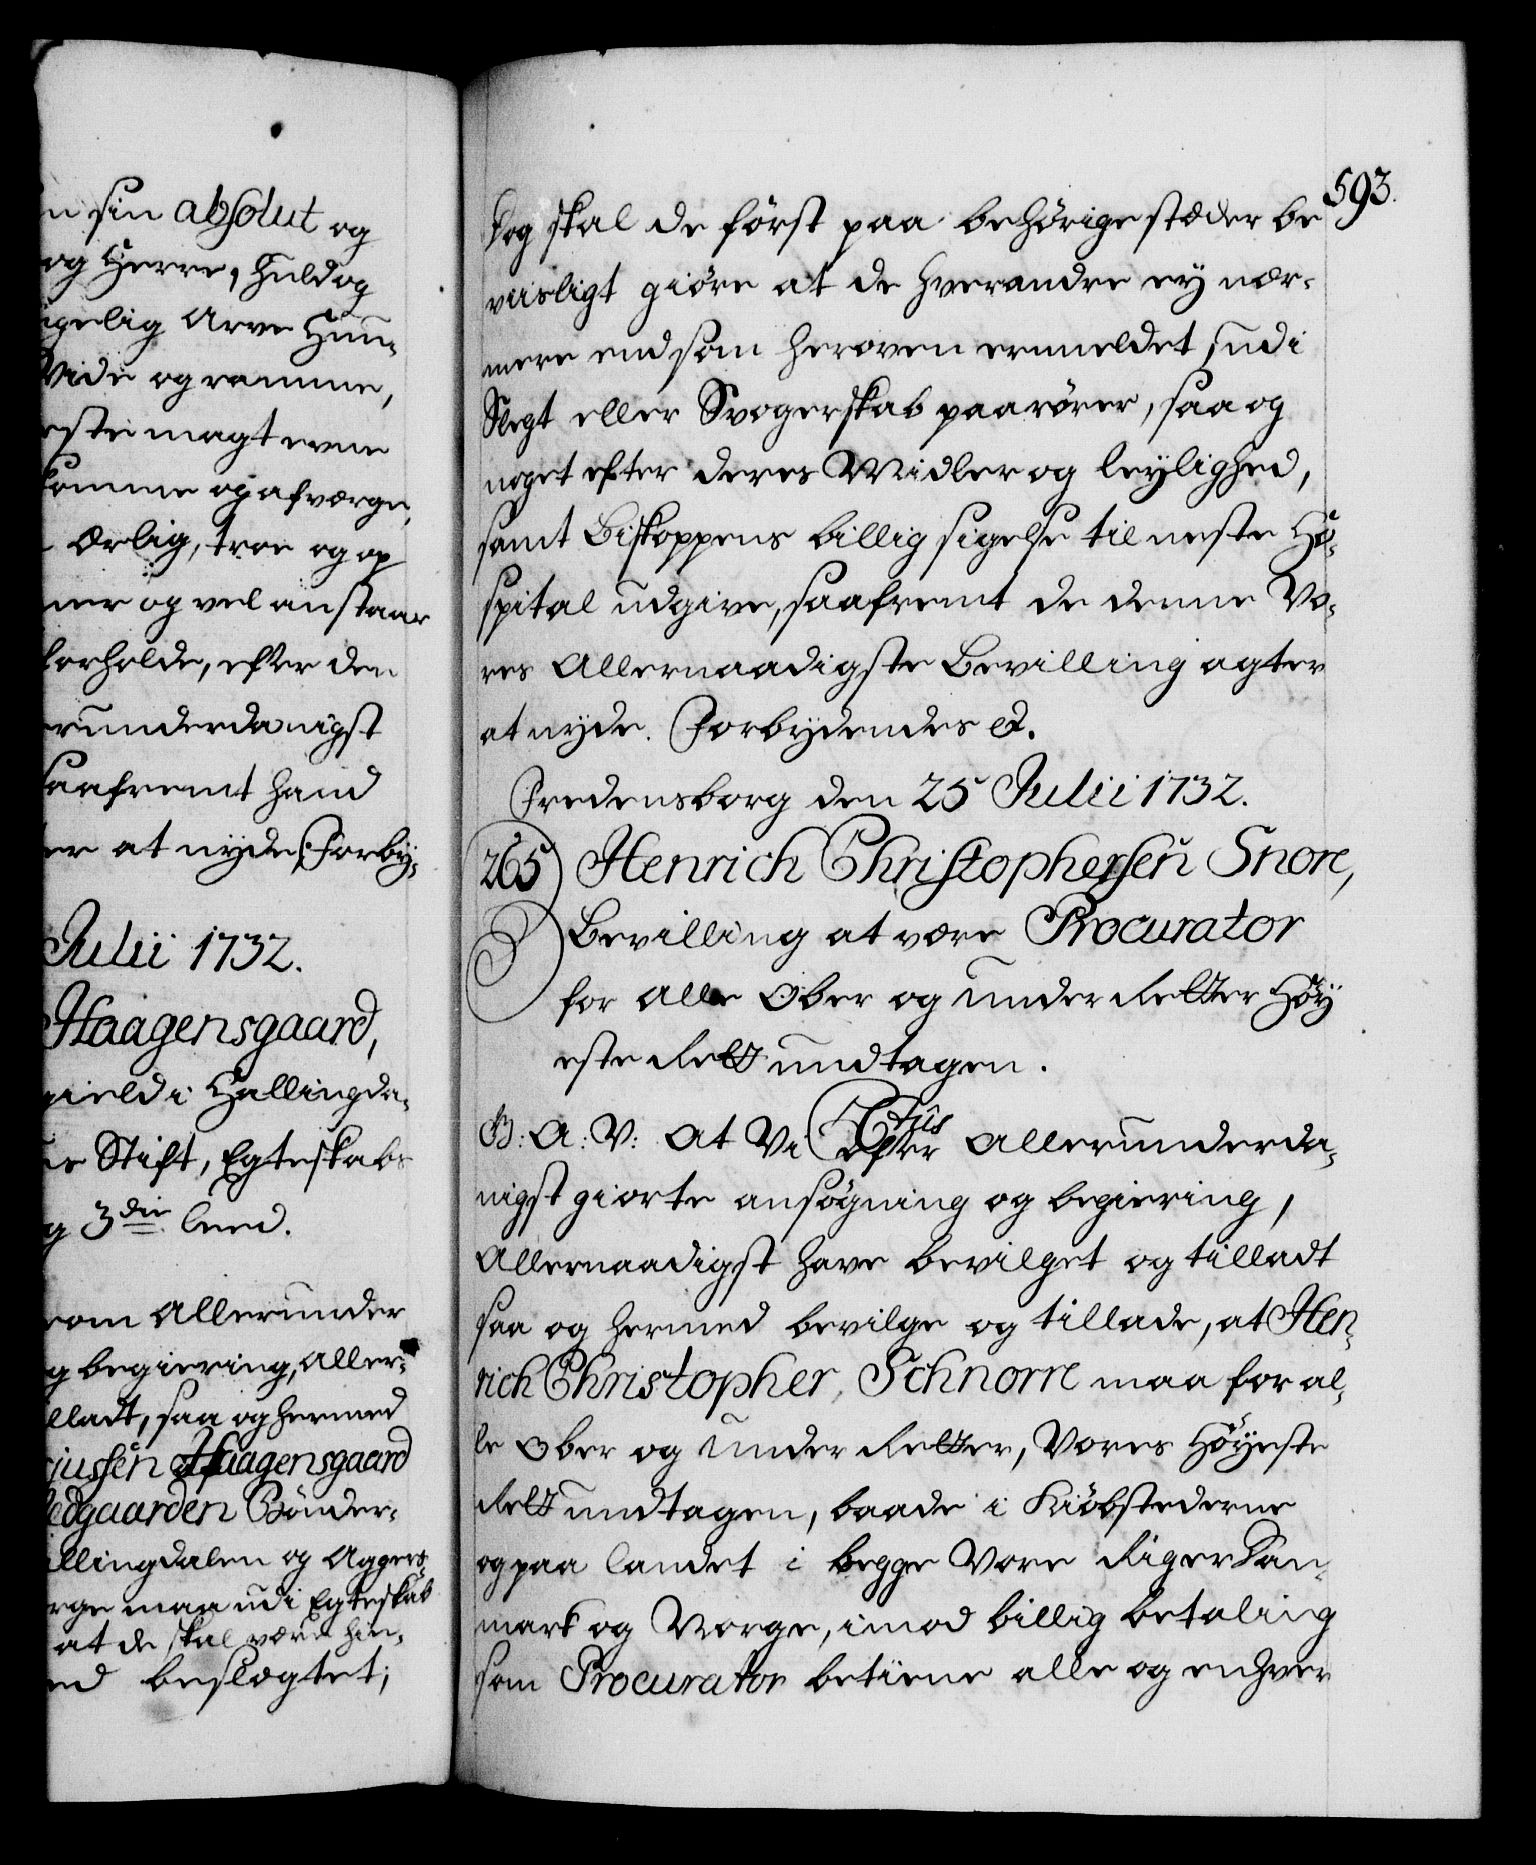 n sin absolut og
og Herre, huld og
igelig Arve Hun-
vide og ramme,
este magt evne
komme og afværge,
ærlig, troe og op
ner og vel anstaar
forholde, efter den
erunderdanigst
saafremt hand
ter at nyde. Forby-
Julii 1732.
Haagensgaard,
gield i Hallingda-
us Stift, Egteskabs
g 3die leed.
som Allerunder
g begiering, Aller-
lladt, saa og hermed
jussen Haagensgaard
edgaarden Bönder-
allingdalen og Aggers-
orge maa udi Egteskab
at de skal være hin-
ed beslægtet;
593.
Dog skal de först paa behörige stæder be
viisligt giöre at de hverandre ey nær-
mere end som heroven ermeldet, udi
Slegt eller Svogerskab paarörer, saa og
noget efter deres Midler og leylighed,
samt Biskoppens billig sigelse til neste Ho-
spital udgive, saafremt de denne Vo-
res Allernaadigste Bevilling agter
at nyde. Forbydendes etc.
Fredensborg den 25 Julii 1732.
265 Henrich Christophersen Snore,
Bevilling at være Procurator
for alle Ober og under Retter Höy
este Rett undtagen.
G: A: V: At Vi efter Allerunderda-
nigst giorte ansögning og begiering,
Allernaadigst have bevilget og tilladt
saa og hermed bevilge og tillade, at Hen-
rich Christopher Schnorre maa for al-
le Ober og under Retter, Vores Höyeste
Rett undtagen, baade i Kiöbstederne
og paa landet i begge Vore Riger Dan-
mark og Norge, imod billig betaling
som Procurator betiene alle og enhver